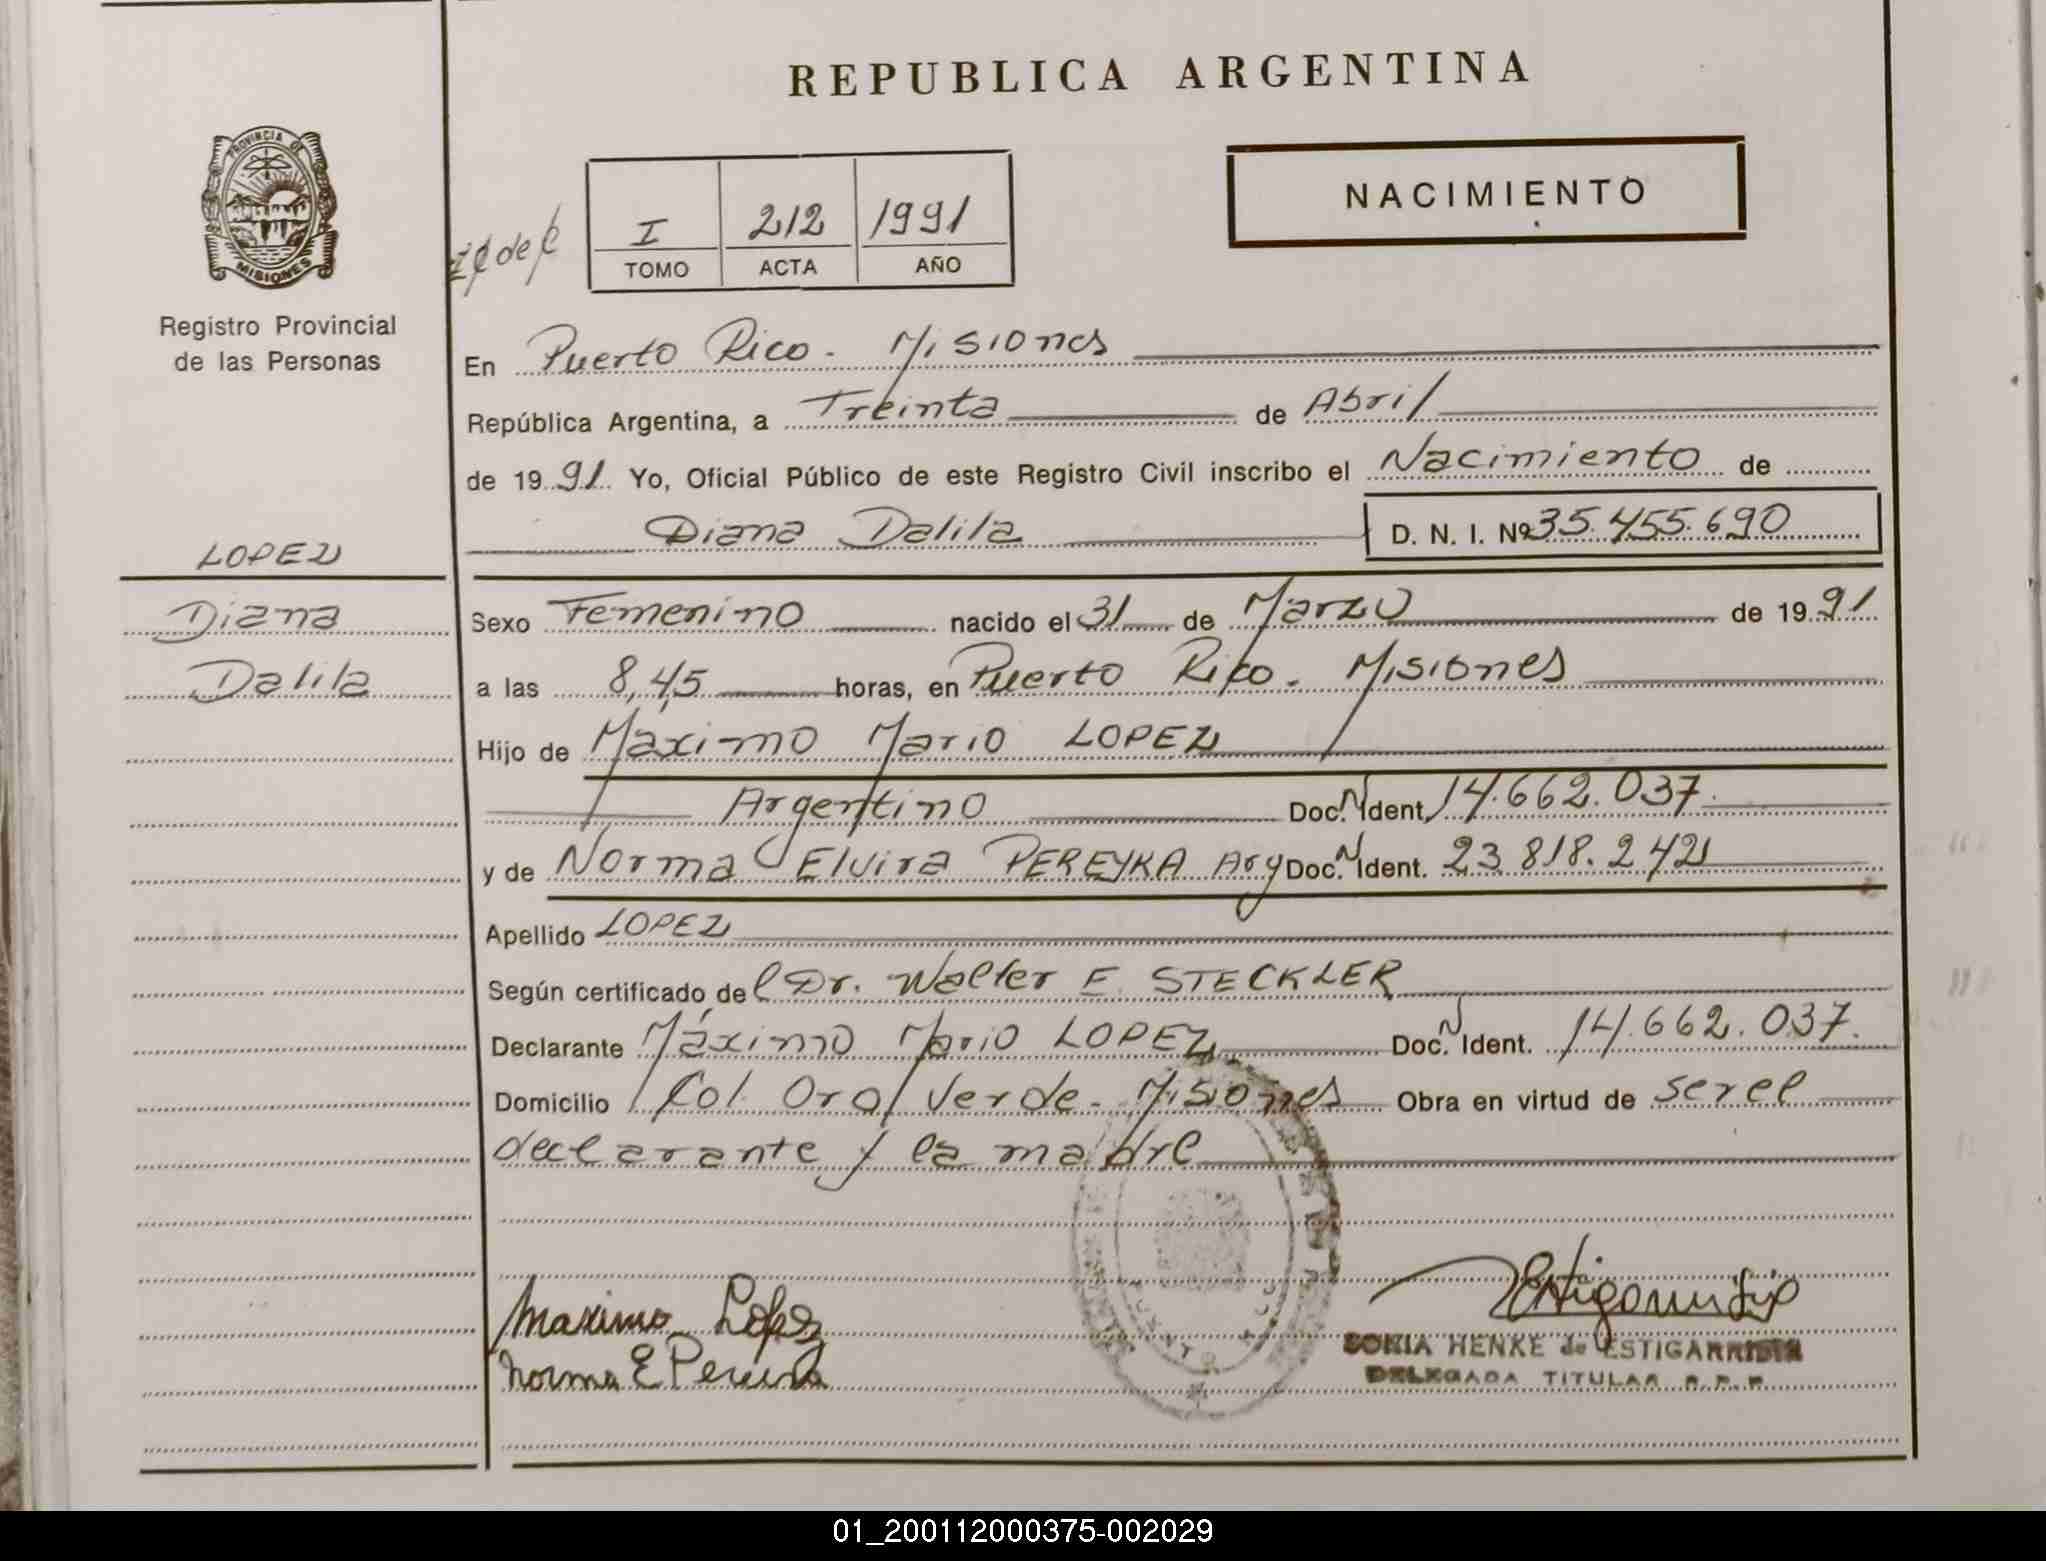 REPUBLICA ARGENTINA
PROVINCIA DE
MISIONES
Registro Provincial
de las Personas
NACIMIENTO
I 212 1991
TOMO ACTA AÑO
En Puerto Rico - Misiones
República Argentina, a Treinta de Abril
de 1991 Yo, Oficial Público de este Registro Civil inscribo el Nacimiento de
Diana Dalila D. N. I. Nº 35.455.690
LOPEZ
Diana
Dalila
Sexo Femenino nacido el 31 de Marzo de 1991
a las 8,45 horas, en Puerto Rico - Misiones
Hijo de Máximo Mario LOPEZ
Argentino Doc. N Ident. 14.662.037
y de Norma Elvira PEREYRA Arg Doc. N Ident. 23.818.242
Apellido LOPEZ
Según certificado del Dr. Walter E. STECKLER
Declarante Máximo Mario LOPEZ Doc. N Ident. 14.662.037.
Domicilio Col. Oro Verde - Misiones Obra en virtud de ser el
declarante y la madre
Maximo Lopez
Norma E Pereira
SONIA HENKE de ESTIGARRIBIA
DELEGADA TITULAR R.P.P.
01_200112000375-002029